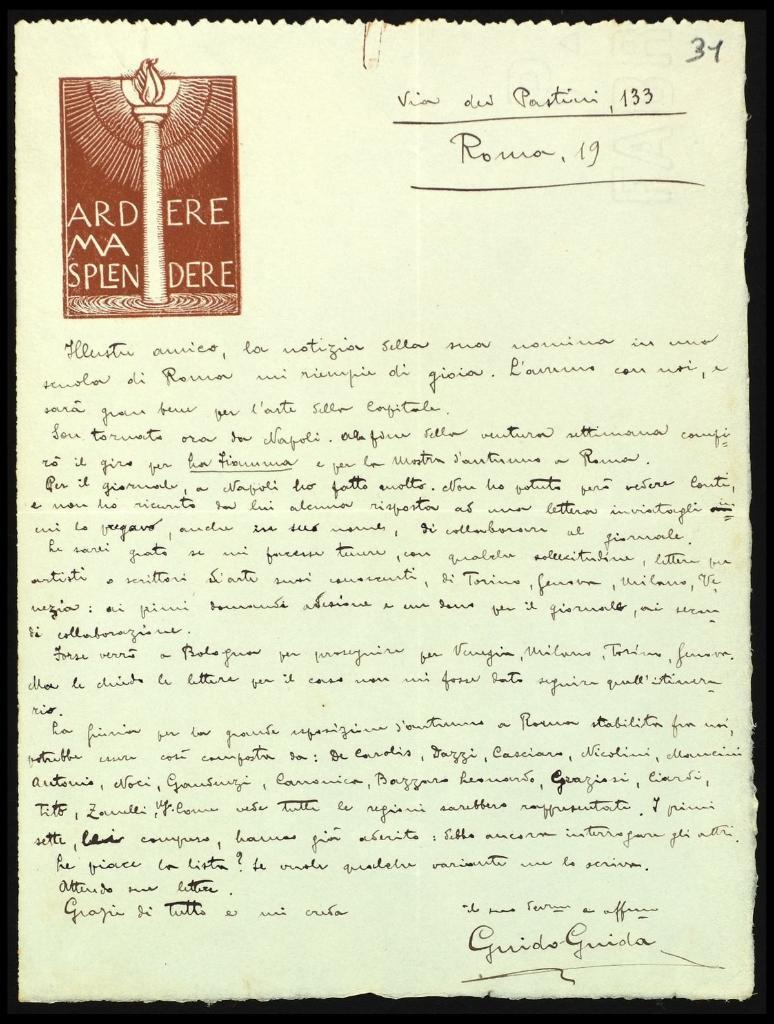 31
Via dei Pastini, 133
Roma, 19
ARDERE
MA
SPLENDERE
Illustre amico, la notizia della sua nomina in una
scuola di Roma mi riempie di gioia. L'avremo con noi, e
sarà gran bene per l'arte della Capitale.
Son tornato ora da Napoli. Alla fine della ventura settimana compi-
rò il giro per La Fiamma e per la Mostra d'autunno a Roma.
Per il giornale, a Napoli ho fatto molto. Non ho potuto però vedere Conti,
e non ho ricevuto da lui alcuna risposta ad una lettera inviatagli
cui lo pregavo, anche in suo nome, di collaborare al giornale.
Le sarei grato se mi facesse tenere, con qualche sollecitudine, lettere per
artisti o scrittori d'arte suoi conoscenti, di Torino, Genova, Milano, Ve-
nezia: ai primi domando adesione e un dono per il giornale, ai secon-
di collaborazione.
Forse verrò a Bologna per proseguire per Venezia, Milano, Torino, Genova.
Ma le chiedo le lettere per il caso non mi fosse dato seguire quell'itinera-
rio.
La giuria per la grande esposizione d'autunno a Roma stabilita fra noi,
potrebbe essere così composta da: De Carolis, Dazzi, Casciaro, Nicolini, Mancini
Antonio, Noci, Gaudenzi, Canonica, Bazzaro Leonardo, Graziosi, Ciardi,
Tito, Zanelli. Come vede tutte le regioni sarebbero rappresentate. I primi
sette, lei compreso, hanno già aderito: debbo ancora interrogare gli altri.
Le piace la lista? Se vuole qualche variante me lo scriva.
Attendo sue lettere.
Grazie di tutto e mi creda
il suo dev.mo e aff.mo
Guido Guida